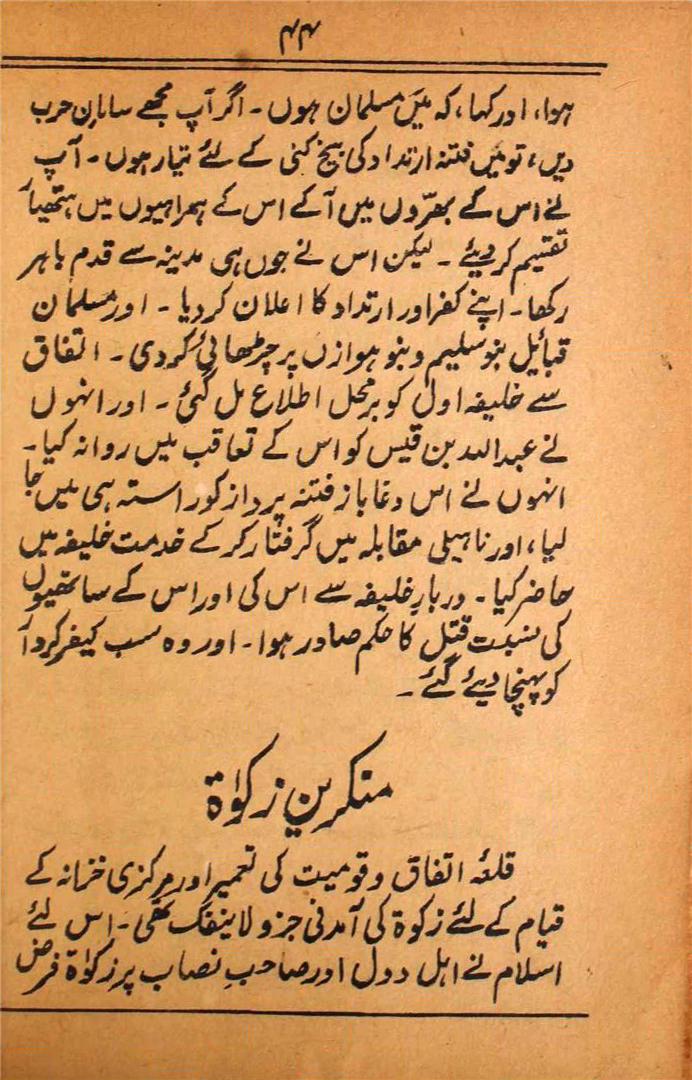 ۴۴
ہوا، اور کہا، کہ میں مسلمان ہوں۔ اگر آپ مجھے سامانِ حرب
دیں، تو میں فتنہ ارتداد کی بیخ کنی کے لئے تیار ہوں۔ آپ
نے اس کے بھرّوں میں آ کے اس کے ہمراہیوں میں ہتھیار
تقسیم کر دیئے۔ لیکن اس نے جوں ہی مدینہ سے قدم باہر
رکھا۔ اپنے کفر اور ارتداد کا اعلان کر دیا۔ اور مسلمان
قبائیل بنو سلیم و بنو ہوازں پر چڑھائی کر دی۔ اتفاق
سے خلیفہ اول کو برمحل اطلاع مل گئی۔ اور انہوں
نے عبد اللہ بن قیس کو اس کے تعاقب میں روانہ کیا۔
انہوں نے اس دغا باز فتنہ پرداز کو راستہ ہی میں جا
لیا، اور ناہیلی مقابلہ میں گرفتار کر کے خدمت خلیفہ میں
حاضر کیا۔ دربارِ خلیفہ سے اس کی اور اس کے ساتھیوں
کی نسبت قتل کا حکم صادر ہوا۔ اور وہ سب کیفر کردار
کو پہنچا دیئے گئے۔
منکرینِ زکوٰۃ
قلعۂ اتفاق و قومیت کی تعمیر اور مرکزی خزانہ کے
قیام کے لئے زکوۃ کی آمدنی جزو لاینفک تھی۔ اس لئے
اسلام نے اہل دول اور صاحبِ نصاب پر زکوٰۃ فرض